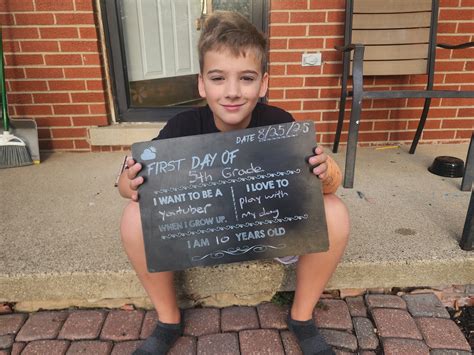 DATE 8/25/25
FIRST DAY OF
5th Grade
I WANT TO BE A
youtuber
WHEN I GROW UP.
I LOVE TO
play with
my dog
I AM 10 YEARS OLD